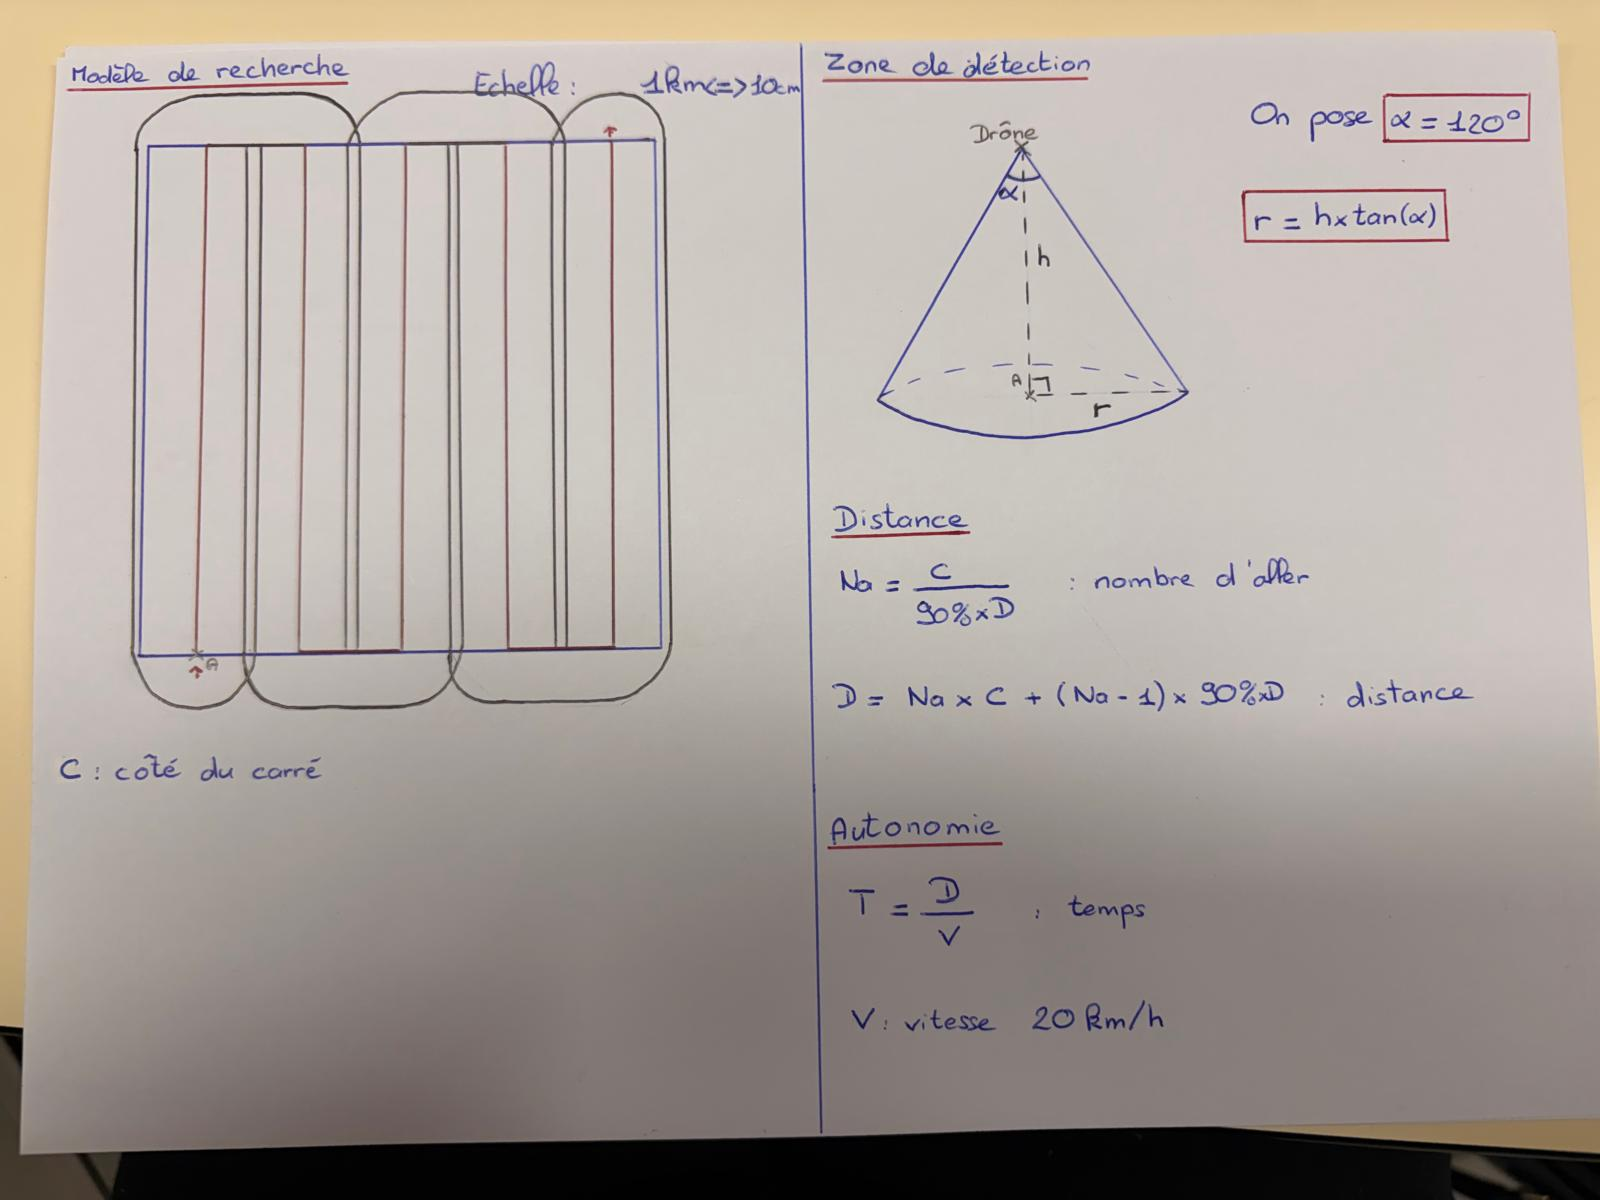 Modèle de recherche
Echelle : 1km<=>10cm
A
C : côté du carré
Zone de détection
On pose α = 120°
Drône
α
r = h x tan(α)
h
A
r
Distance
Na = C / 90% x D : nombre d'aller
D = Na x C + (Na - 1) x 90% x D : distance
Autonomie
T = D / V : temps
V : vitesse 20 km/h